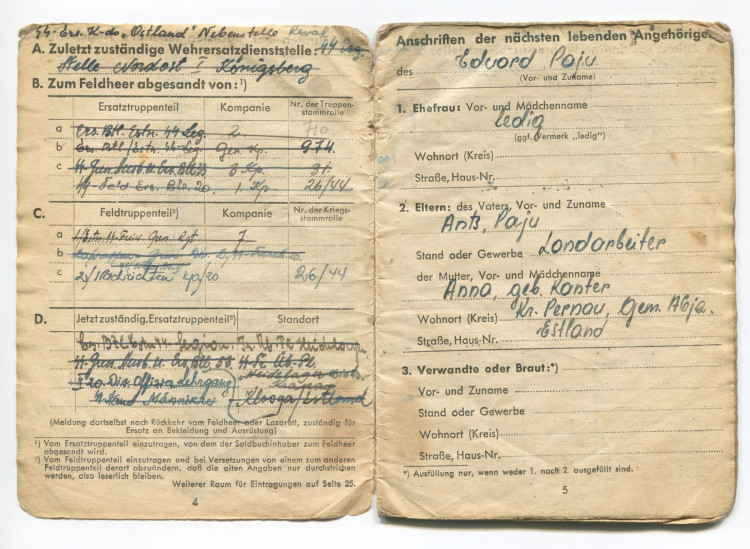 SS-Ers. K-do „Ostland" Nebenstelle Reval
A. Zuletzt zuständige Wehrersatzdienststelle: SS Erg.
Stelle Nordost I Königsberg
B. Zum Feldheer abgesandt von:¹)
Ersatztruppenteil
Kompanie
Nr. der Truppen-
stammrolle
a Ers. Btl. Estn. SS Leg. 2. 710
b Ers. Btl/Estn. SS-Leg. Gen. Kp. 974.
c SS-Gren. Ausb. u. Ers. Btl. 33 3 Kp. 31.
SS-Feld Ers. Btl. 20. 1. Kp 26/44
C.
Feldtruppenteil²)
Kompanie
Nr. der Kriegs-
stammrolle
a 1/Estn. SS-Freiw. Gren. Rgt 7
b
c 2/Nachrichten Kp/20 26/44
D.
Jetzt zuständig. Ersatztruppenteil²)
Standort
Ers. Btl. Estn. SS-Legion. Tr. Üb. Pl. Heidelager
SS-Gren. Ausb. u. Ers. Btl. 33. SS-Tr. Üb. Pl.
Heidelager
20. Div. Lehrgang
Männiku Klooga/Estland
(Meldung dortselbst nach Rückkehr vom Feldheer oder Lazarett, zuständig für
Ersatz an Bekleidung und Ausrüstung)
¹) Vom Ersatztruppenteil einzutragen, von dem der Soldbuchinhaber zum Feldheer
abgesandt wird.
²) Vom Feldtruppenteil einzutragen und bei Versetzungen von einem zum anderen
Feldtruppenteil derart abzuändern, daß die alten Angaben nur durchstrichen
werden, also leserlich bleiben.
Weiterer Raum für Eintragungen auf Seite 25.
4
Anschriften der nächsten lebenden Angehörige
des Eduard Paju
(Vor- und Zuname)
1. Ehefrau: Vor- und Mädchenname
ledig
(ggf. Vermerk „ledig")
Wohnort (Kreis)
Straße, Haus-Nr.
2. Eltern: des Vaters, Vor- und Zuname
Ants, Paju
Stand oder Gewerbe Landarbeiter
der Mutter, Vor- und Mädchenname
Anna, geb. Kanter
Wohnort (Kreis) Kr. Pernau, Gem. Abja.
Estland
Straße, Haus-Nr.
3. Verwandte oder Braut:*)
Vor- und Zuname
Stand oder Gewerbe
Wohnort (Kreis)
Straße, Haus-Nr.
*) Ausfüllung nur, wenn weder 1. noch 2. ausgefüllt sind.
5